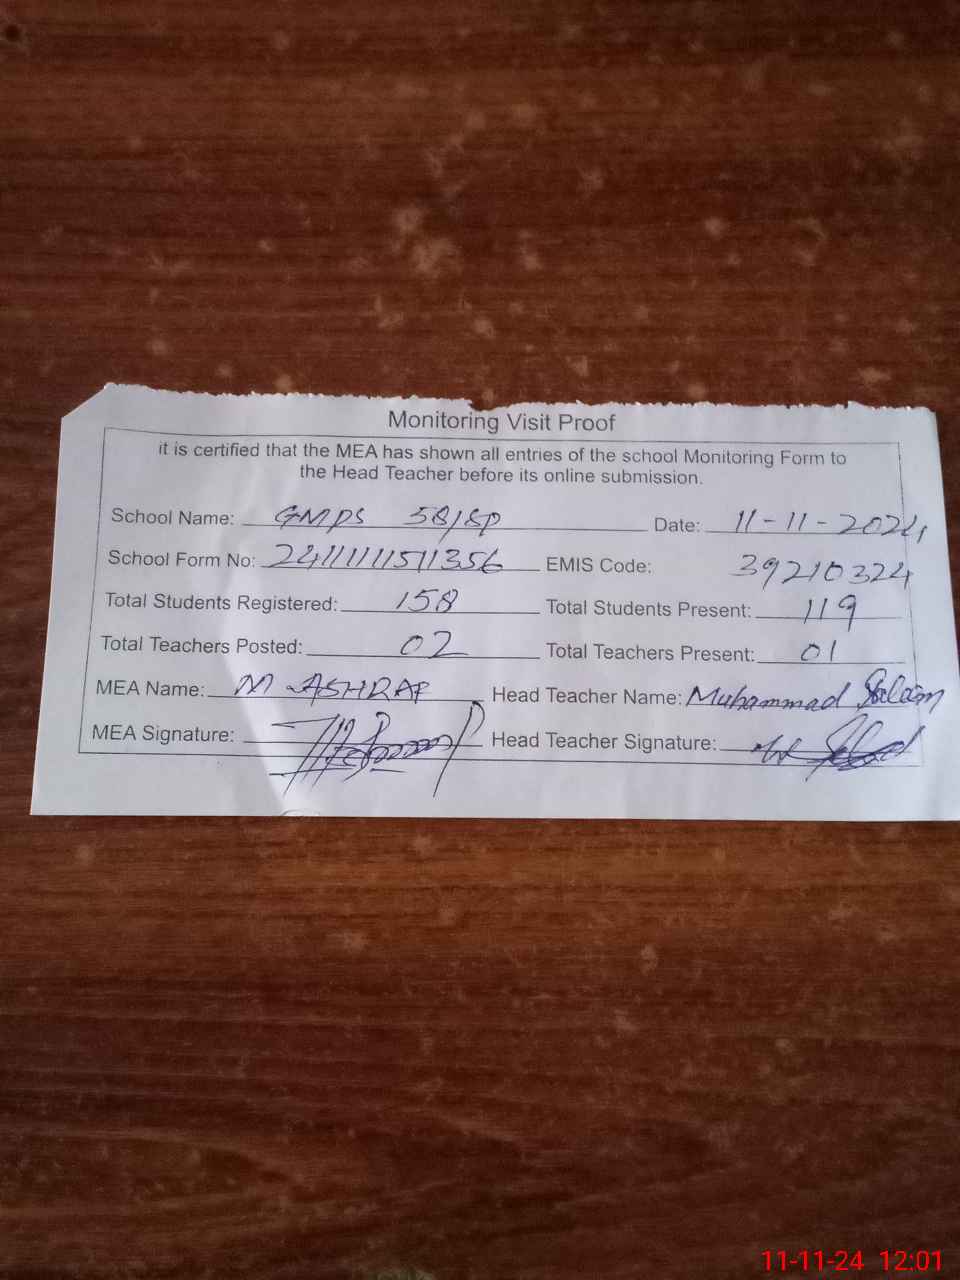 Monitoring Visit Proof
it is certified that the MEA has shown all entries of the school Monitoring Form to
the Head Teacher before its online submission.
School Name: GMPS 58/SP Date: 11-11-2024
School Form No: 2411111511356 EMIS Code: 39210324
Total Students Registered: 158 Total Students Present: 119
Total Teachers Posted: 02 Total Teachers Present: 01
MEA Name: M ASHRAF Head Teacher Name: Muhammad Saleem
MEA Signature: Head Teacher Signature:
11-11-24 12:01